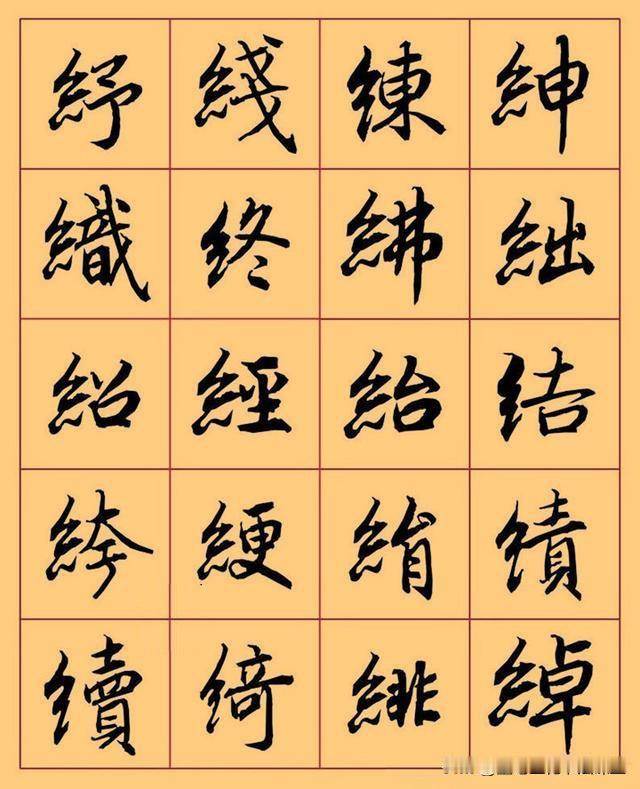 紓綫練紳
織終紼絀
紹經紿結
絝綆絹績
續綺緋綽